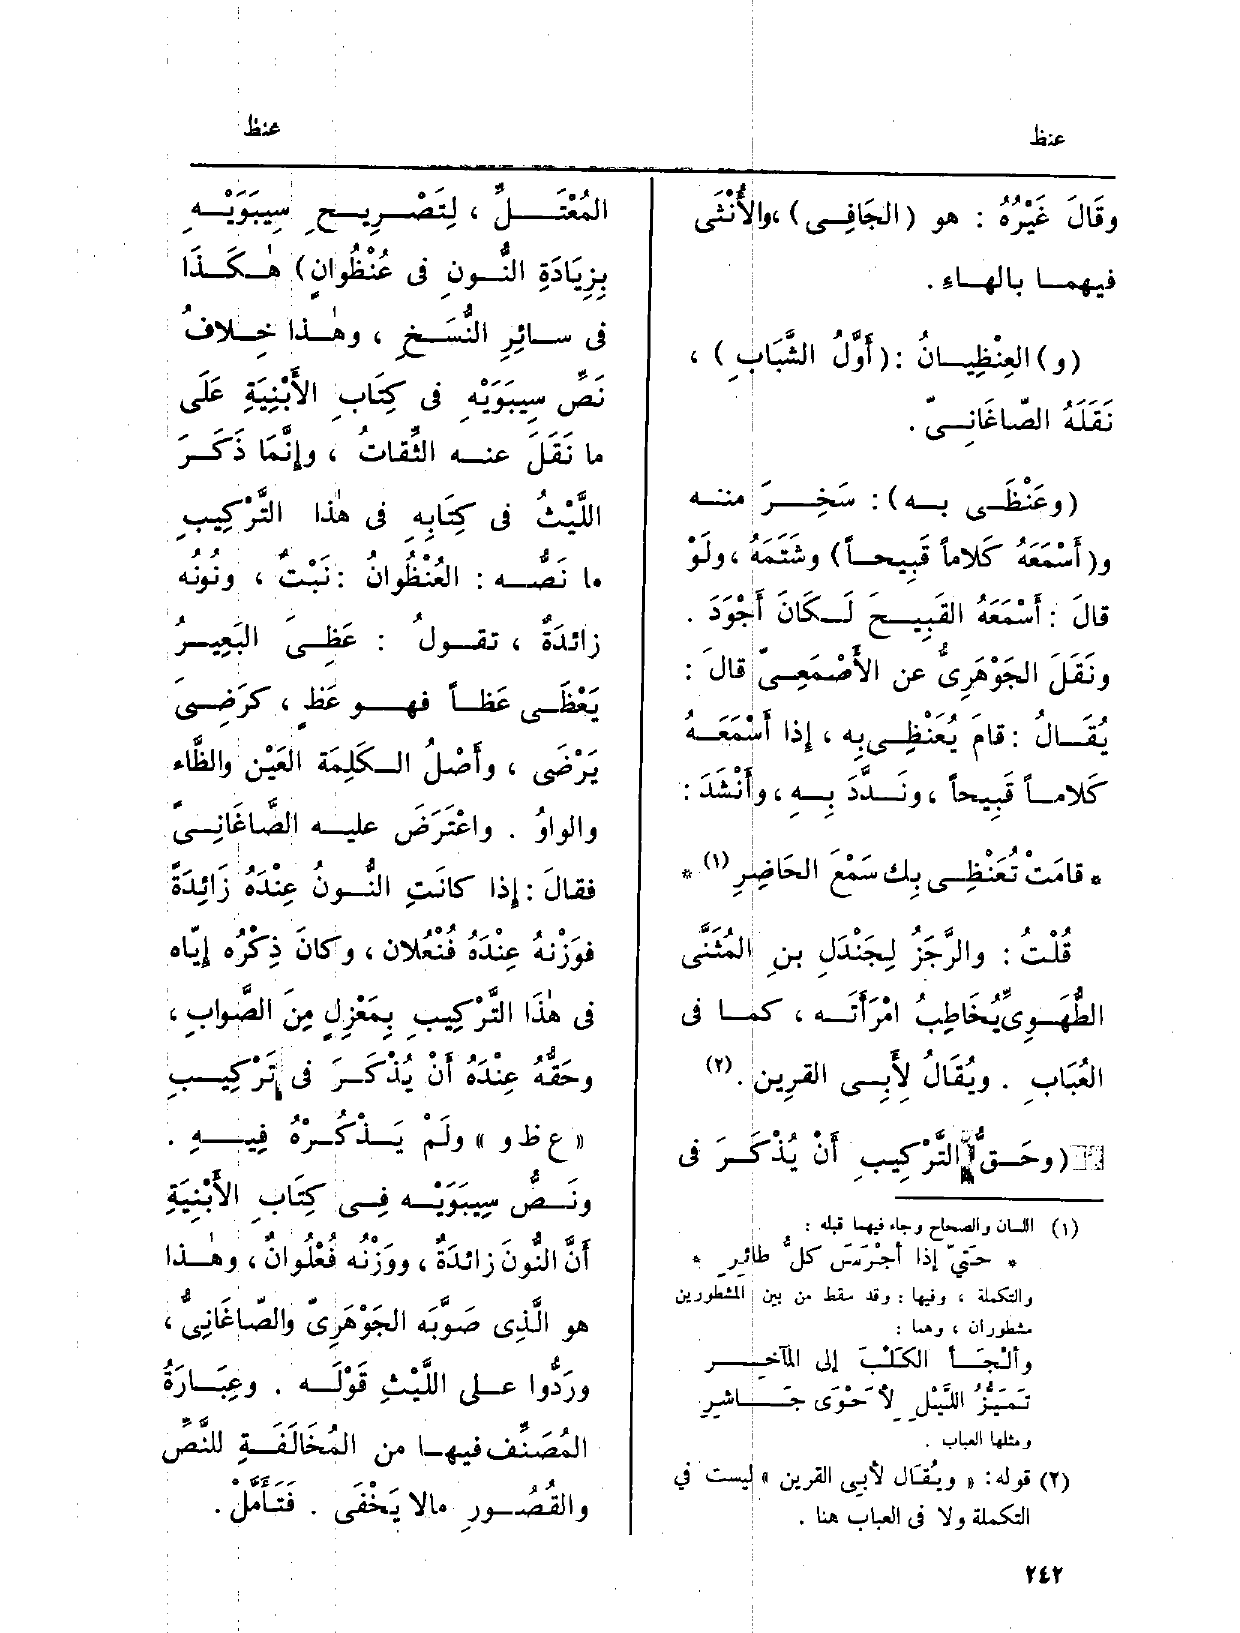 عنظ
عنظ
وقَالَ غَيْرُهُ : هو (الجَافِى) ،والأُنْثَى
فيهمـا بالهـاءِ .
(و) العِنْظِيـانُ :(أَوَّلُ الشَّبَابِ) ،
نَقَلَهُ الصّاغَانِـىّ .
(وعَنْظَى بـه) : سَخِـرَ منـه
و(أَسْمَعَهُ كَلاماً قَبِيحـاً) وشَتَمَهُ ،ولَوْ
قالَ : أَسْمَعَهُ القَبِيـحَ لَـكَانَ أَجْوَدَ .
ونَقَلَ الجَوْهَرِىُّ عن الأَصْمَعِـىّ قالَ :
يُقَـالُ :قامَ يُعَنْظِـى بِه ، إِذا أَسْمَعَـهُ
كَلامـاً قَبِيحاً ، ونَـدَّدَ بِـهِ ، وأَنْشَدَ :
* قامَتْ تُعَنْظِـى بِك سَمْعَ الحَاضِرِ (١) *
قُلْتُ : والرَّجَزُ لِجَنْدَلِ بنِ المُثَنَّى
الطُّهَـوِىِّ يُخَاطِبُ امْرَأَتَـه ، كمـا فى
العُبَابِ . ويُقَالُ لِأَبِـى القرِين . (٢)
(وحَـقُّ التَّرْكِيبِ أَنْ يُذْكَـرَ فى
(١) اللسان والصحاح وجاء فيهما قبله :
* حَتَّى إذا أجْرَسَ كلُّ طائِرِ *
والتكملة ، وفيها : وقد سقط من بين المشطورين
مشطوران ، وهما :
وألْجَـأَ الكَلْبَ إلى المآخِـر
تَمَيُّزُ اللَّيْلِ لأَحْوَى جَـاشِرِ
ومثلها العباب .
(٢) قوله : « ويُقال لأبي القرين » ليست في
التكملة ولا فى العباب هنا .
٢٤٢
المُعْتَـلِّ ، لِتَصْرِيـحِ سِيبَوَيْـهِ
بِزِيَادَةِ النُّـونِ فى عُنْظُوانٍ) هٰـكَـذَا
فى سـائِرِ النُّسَـخِ ، وهٰـذا خِـلافُ
نَصِّ سِيبَوَيْهِ فى كِتَابِ الأَبْنِيَةِ عَلَى
ما نَقَلَ عنـه الثِّقاتُ ، وإِنَّمَا ذَكَـرَ
اللَّيْثُ فى كِتَابِهِ فى هٰذا التَّرْكِيبِ
ما نَصُّـه : العُنْظُوانُ :نَبْتٌ ، ونُونُه
زائدَةٌ ، تقـولُ : عَظِـىَ البَعِيـرُ
يَعْظَـى عَظـاً فهـو عَظٍ ، كرَضِـىَ
يَرْضَى ، وأَصْلُ الـكَلِمَة العَيْن والظّاء
والواوُ . واعْتَرَضَ عليـه الصَّاغَانِـىّ
فقالَ : إِذا كانَتِ النُّـونُ عِنْدَهُ زَائِدَةً
فوَزْنهُ عِنْدَهُ فُنْعُلان ، وكانَ ذِكْرُه إِيّاه
فى هٰذَا التَّرْكِيبِ بِمَعْزِلٍ مِنَ الصَّوابِ ،
وحَقُّهُ عِنْدَهُ أَنْ يُذْكَـرَ فى تَرْكِيـبِ
« ع ظ و » ولَمْ يَـذْكُـرْهُ فِيـهِ .
ونَـصُّ سِيبَوَيْـه فِـى كِتَابِ الأَبْنِيَةِ
أَنَّ النُّونَ زائدَةٌ ، ووَزْنُه فُعْلُوانٌ ، وهٰـذا
هو الَّذِى صَوَّبَه الجَوْهَرِىّ والصّاغَانِىُّ ،
ورَدُّوا علـى اللَّيْثِ قَوْلَـه . وعِبَـارَةُ
المُصَنِّف فيهـا من المُخَالَفَـةِ للنَّصِّ
والقُصُـورِ مالا يَخْفَى . فَتَأَمَّلْ .